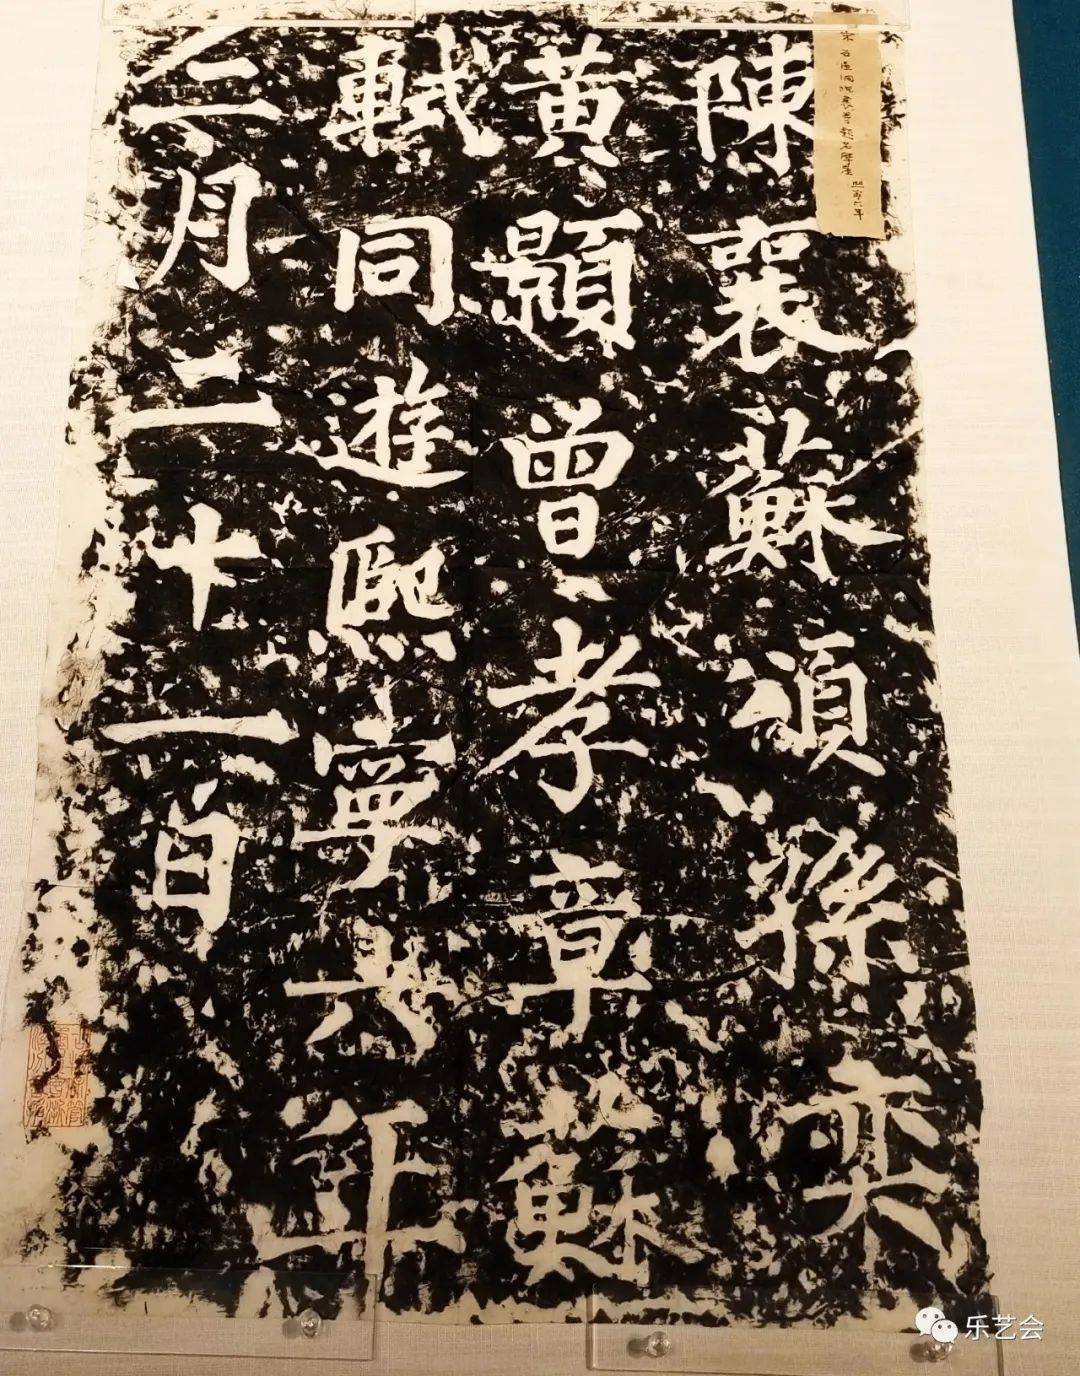 宋石屋洞陳襄等題名摩崖 熙寧六年
陳襄蘇頌孫奕
黃顥曾孝章蘇
軾同遊熙寧六年
二月二十一日
乐艺会